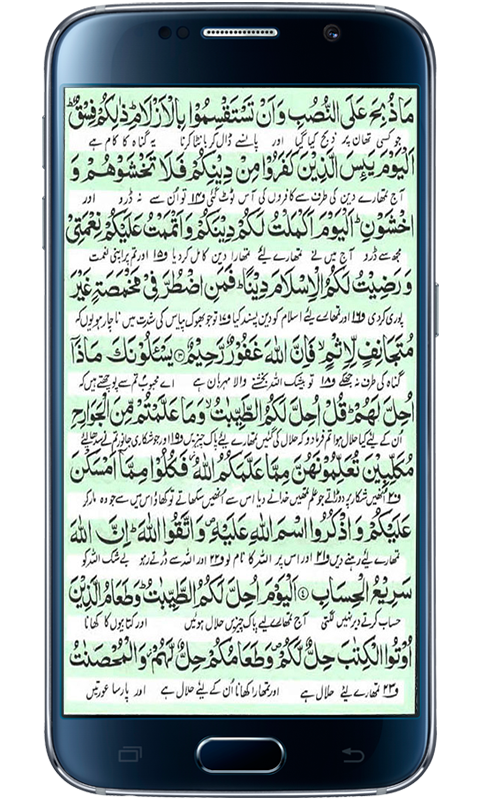 مَاذُبِحَ عَلَى النُّصُبِ وَاَنْ تَسْتَقْسِمُوْا بِالْاَزْلَامِ ؕ ذٰلِكُمْ فِسْقٌ ؕ
جو کسی تھان پر ذبح کیا گیا اور پانسے ڈال کر بانٹا کرنا یہ گناہ کا کام ہے
اَلْيَوْمَ يَىِٕسَ الَّذِيْنَ كَفَرُوْا مِنْ دِيْنِكُمْ فَلَا تَخْشَوْهُمْ وَ
آج تمہارے دین کی طرف سے کافروں کی آس ٹوٹ گئی تو اُن سے نہ ڈرو اور
اخْشَوْنِ ؕ اَلْيَوْمَ اَكْمَلْتُ لَكُمْ دِيْنَكُمْ وَاَتْمَمْتُ عَلَيْكُمْ نِعْمَتِيْ
مجھ سے ڈرو آج میں نے تمہارے لیٔے تمہارا دین کامل کردیا و۱۵ اور تم پر اپنی نعمت
وَرَضِيْتُ لَكُمُ الْاِسْلَامَ دِيْنًا ؕ فَمَنِ اضْطُرَّ فِيْ مَخْمَصَةٍ غَيْرَ
پوری کردی و۱۶ اور تمہارے لیٔے اسلام کو دین پسند کیا تو جو بھوک پیاس کی شدت میں ناچار ہو یوں کہ
مُتَجَانِفٍ لِّاِثْمٍ ۙ فَاِنَّ اللّٰهَ غَفُوْرٌ رَّحِيْمٌ ﴿۳﴾ يَسْـَٔلُوْنَكَ مَاذَآ
گناہ کی طرف نہ جھکے و۱۸ تو بیشک اللہ بخشنے والا مہربان ہے اے محبوب تم سے پوچھتے ہیں کہ
اُحِلَّ لَهُمْ ؕ قُلْ اُحِلَّ لَكُمُ الطَّيِّبٰتُ ۙ وَمَا عَلَّمْتُمْ مِّنَ الْجَوَارِحِ
اُن کے لیٔے کیا حلال ہوا تم فرمادو کہ حلال کی گئیں تمہارے لیٔے پاک چیزیں و۱۹ اور جو شکاری جانور تم نے سدھا لیٔے
مُكَلِّبِيْنَ تُعَلِّمُوْنَهُنَّ مِمَّا عَلَّمَكُمُ اللّٰهُ ؗ فَكُلُوْا مِمَّآ اَمْسَكْنَ
و۲۰ انھیں شکار پر دوڑاتے جو علم تمھیں خدا نے دیا اس سے انھیں سکھاتے تو کھاؤ اس میں سے جو وہ مار کر
عَلَيْكُمْ وَاذْكُرُوا اسْمَ اللّٰهِ عَلَيْهِ ۪ وَاتَّقُوا اللّٰهَ ؕ اِنَّ اللّٰهَ
تمہارے لیٔے رہنے دیں و۲۱ اور اس پر اللہ کا نام لو و۲۲ اور اللہ سے ڈرتے رہو بے شک اللہ کو
سَرِيْعُ الْحِسَابِ ﴿۴﴾ اَلْيَوْمَ اُحِلَّ لَكُمُ الطَّيِّبٰتُ ؕ وَطَعَامُ الَّذِيْنَ
حساب کرتے دیر نہیں لگتی آج تمہارے لیٔے پاک چیزیں حلال ہوئیں اور کتابیوں کا کھانا
اُوْتُوا الْكِتٰبَ حِلٌّ لَّكُمْ ۪ وَطَعَامُكُمْ حِلٌّ لَّهُمْ ؗ وَالْمُحْصَنٰتُ
و۲۳ تمہارے لیٔے حلال ہے اور تمہارا کھانا اُن کے لیٔے حلال ہے اور پارسا عورتیں